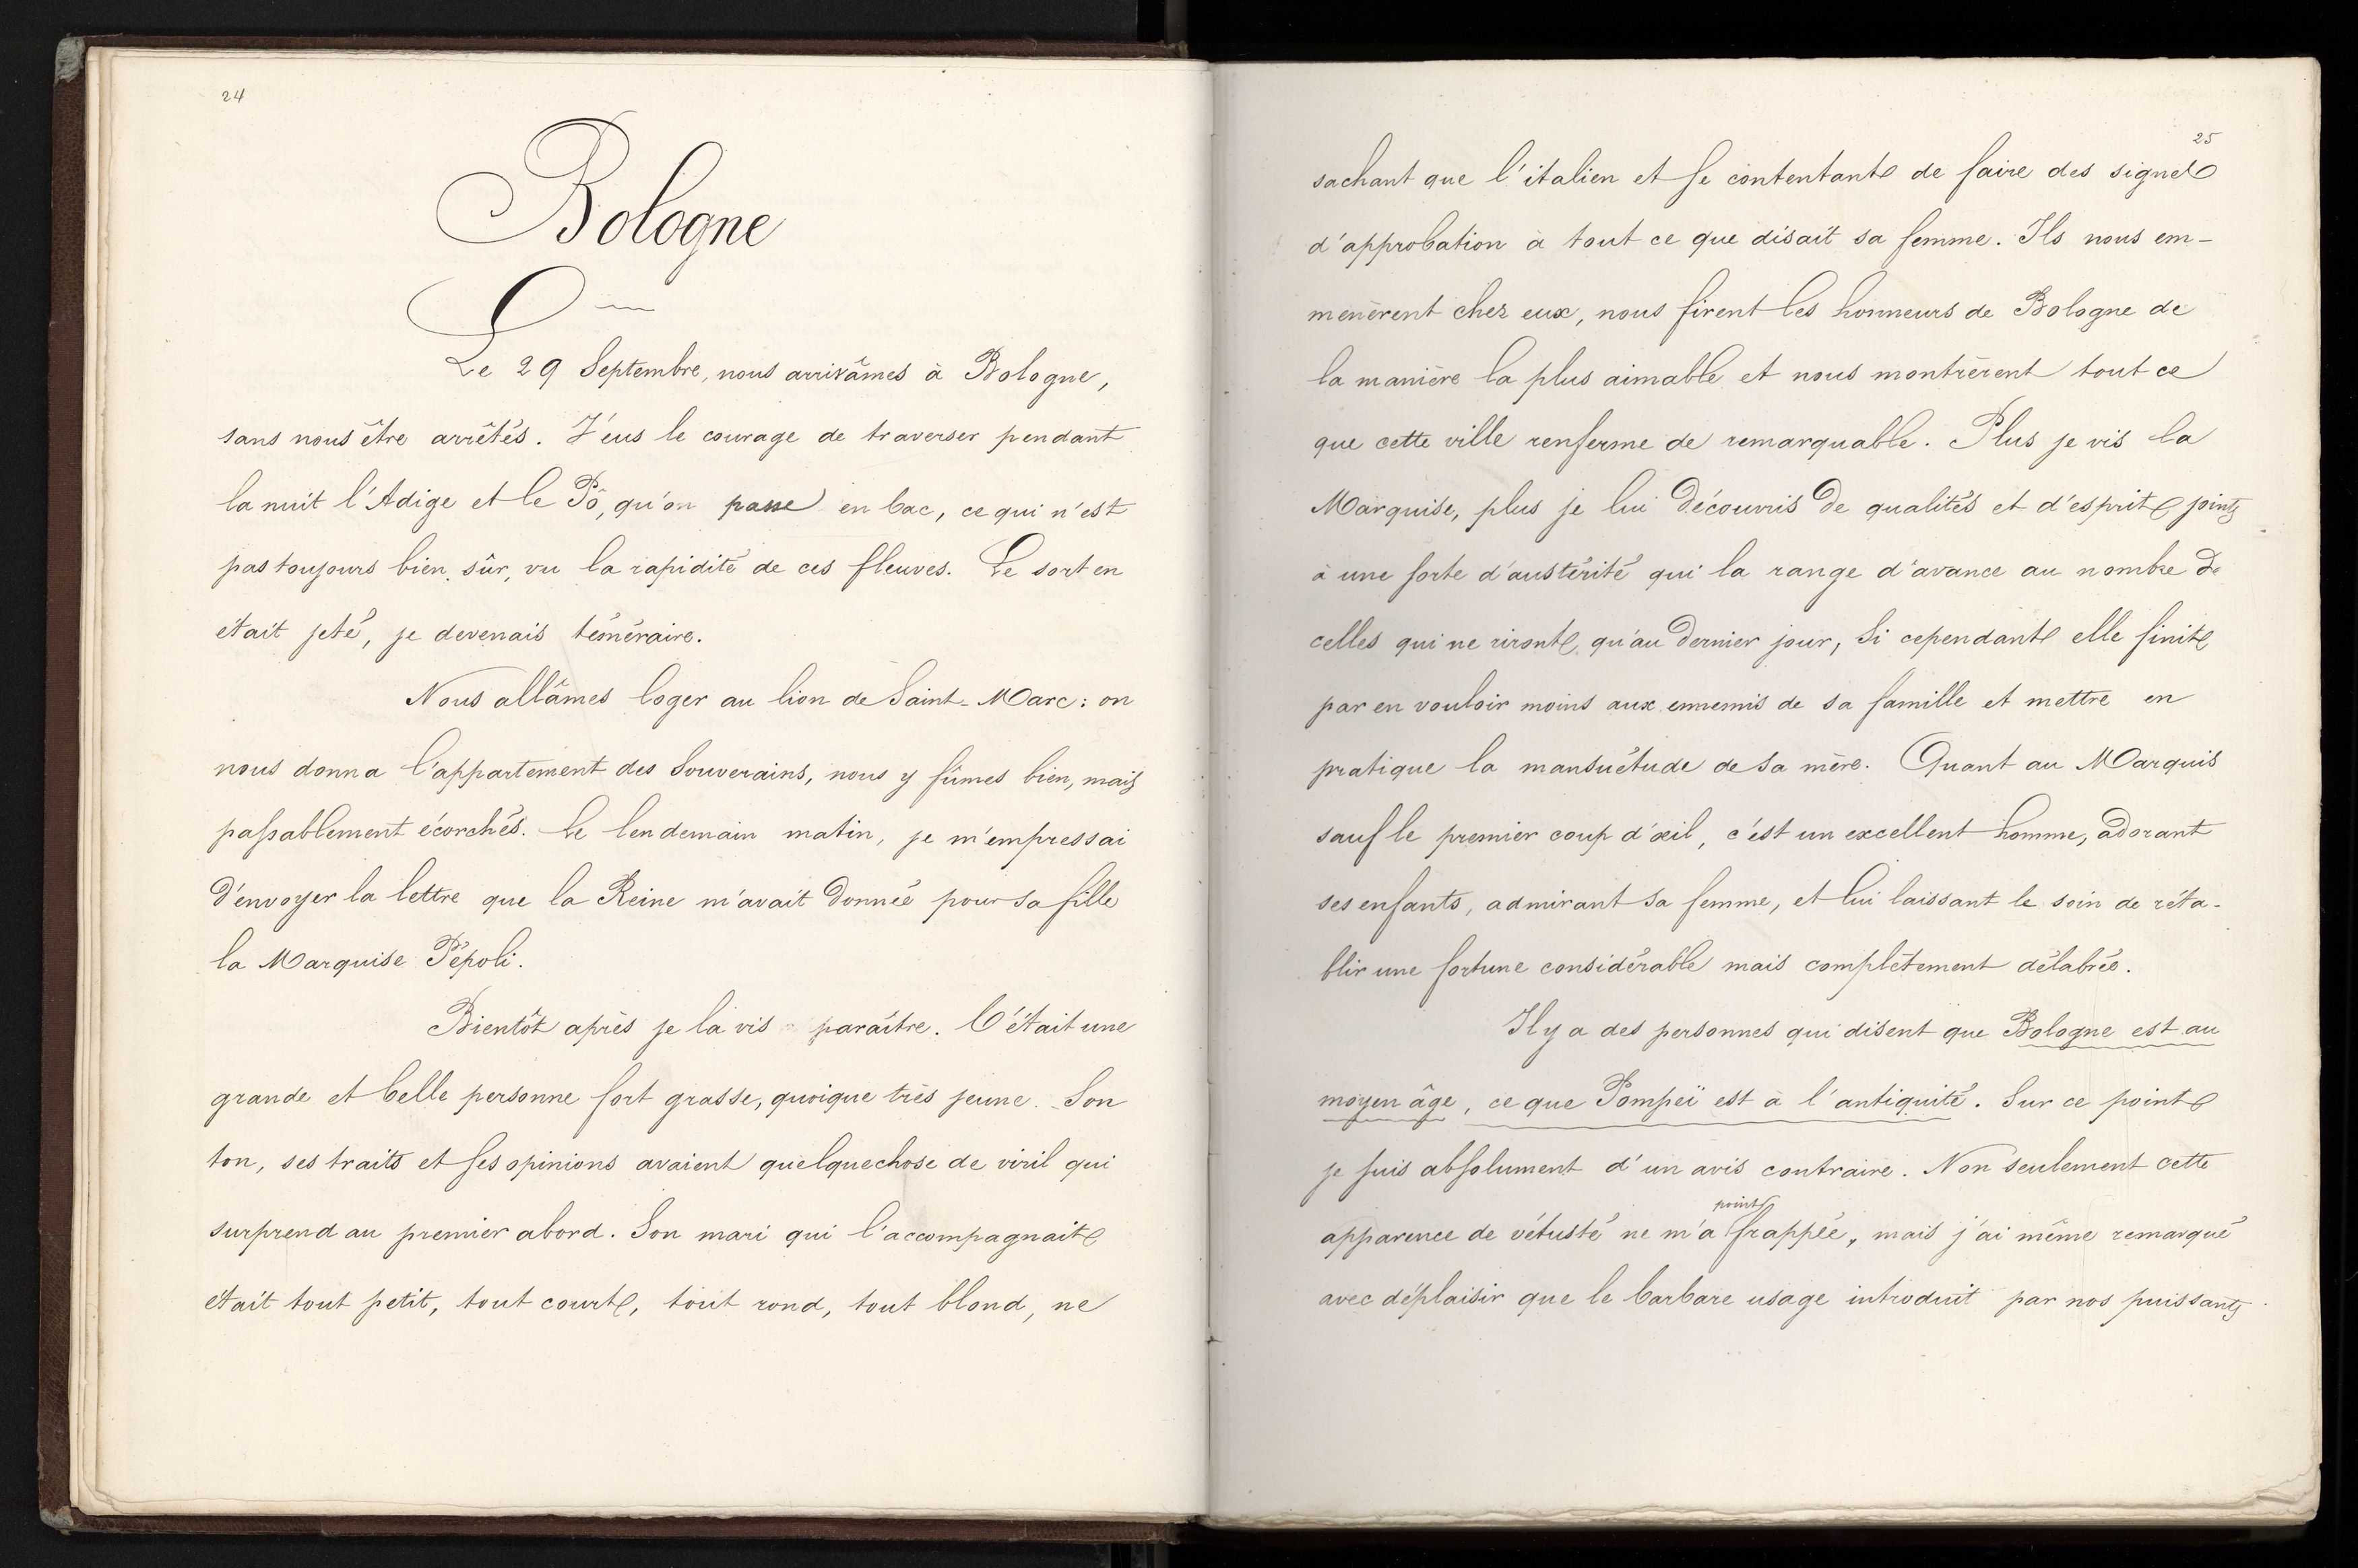 24
Bologne
Le 29 Septembre, nous arrivâmes à Bologne,
sans nous être arrêtés. J'eus le courage de traverser pendant
la nuit l'Adige et le Pô, qu'on passe en bac, ce qui n'est
pas toujours bien sûr, vu la rapidité de ces fleuves. Le sort en
était jeté, je devenais téméraire.
Nous allâmes loger au lion de Saint-Marc: on
nous donna l'appartement des Souverains, nous y fûmes bien, mais
passablement écorchés. Le lendemain matin, je m'empressai
d'envoyer la lettre que la Reine m'avait donnée pour sa fille
la Marquise Pépoli.
Bientôt après je la vis paraître. C'était une
grande et belle personne fort grasse, quoique très jeune. Son
ton, ses traits et ses opinions avaient quelquechose de viril qui
surprend au premier abord. Son mari qui l'accompagnait
était tout petit, tout court, tout rond, tout blond, ne
25
sachant que l'italien et se contentant de faire des signes
d'approbation à tout ce que disait sa femme. Ils nous em-
menèrent chez eux, nous firent les honneurs de Bologne de
la manière la plus aimable et nous montrèrent tout ce
que cette ville renferme de remarquable. Plus je vis la
Marquise, plus je lui découvris de qualités et d'esprit joints
à une sorte d'austérité qui la range d'avance au nombre de
celles qui ne riront qu'au dernier jour, Si cependant elle finit
par en vouloir moins aux ennemis de sa famille et mettre en
pratique la mansuétude de sa mère. Quant au Marquis
sauf le premier coup d'œil, c'est un excellent homme, adorant
ses enfants, admirant sa femme, et lui laissant le soin de réta-
blir une fortune considérable mais complètement délabrée.
Il y a des personnes qui disent que Bologne est au
moyen âge, ce que Pompeï est à l'antiquité. Sur ce point
je suis absolument d'un avis contraire. Non seulement cette
apparence de vétusté ne m'a point frappée, mais j'ai même remarqué
avec déplaisir que le barbare usage introduit par nos puissants